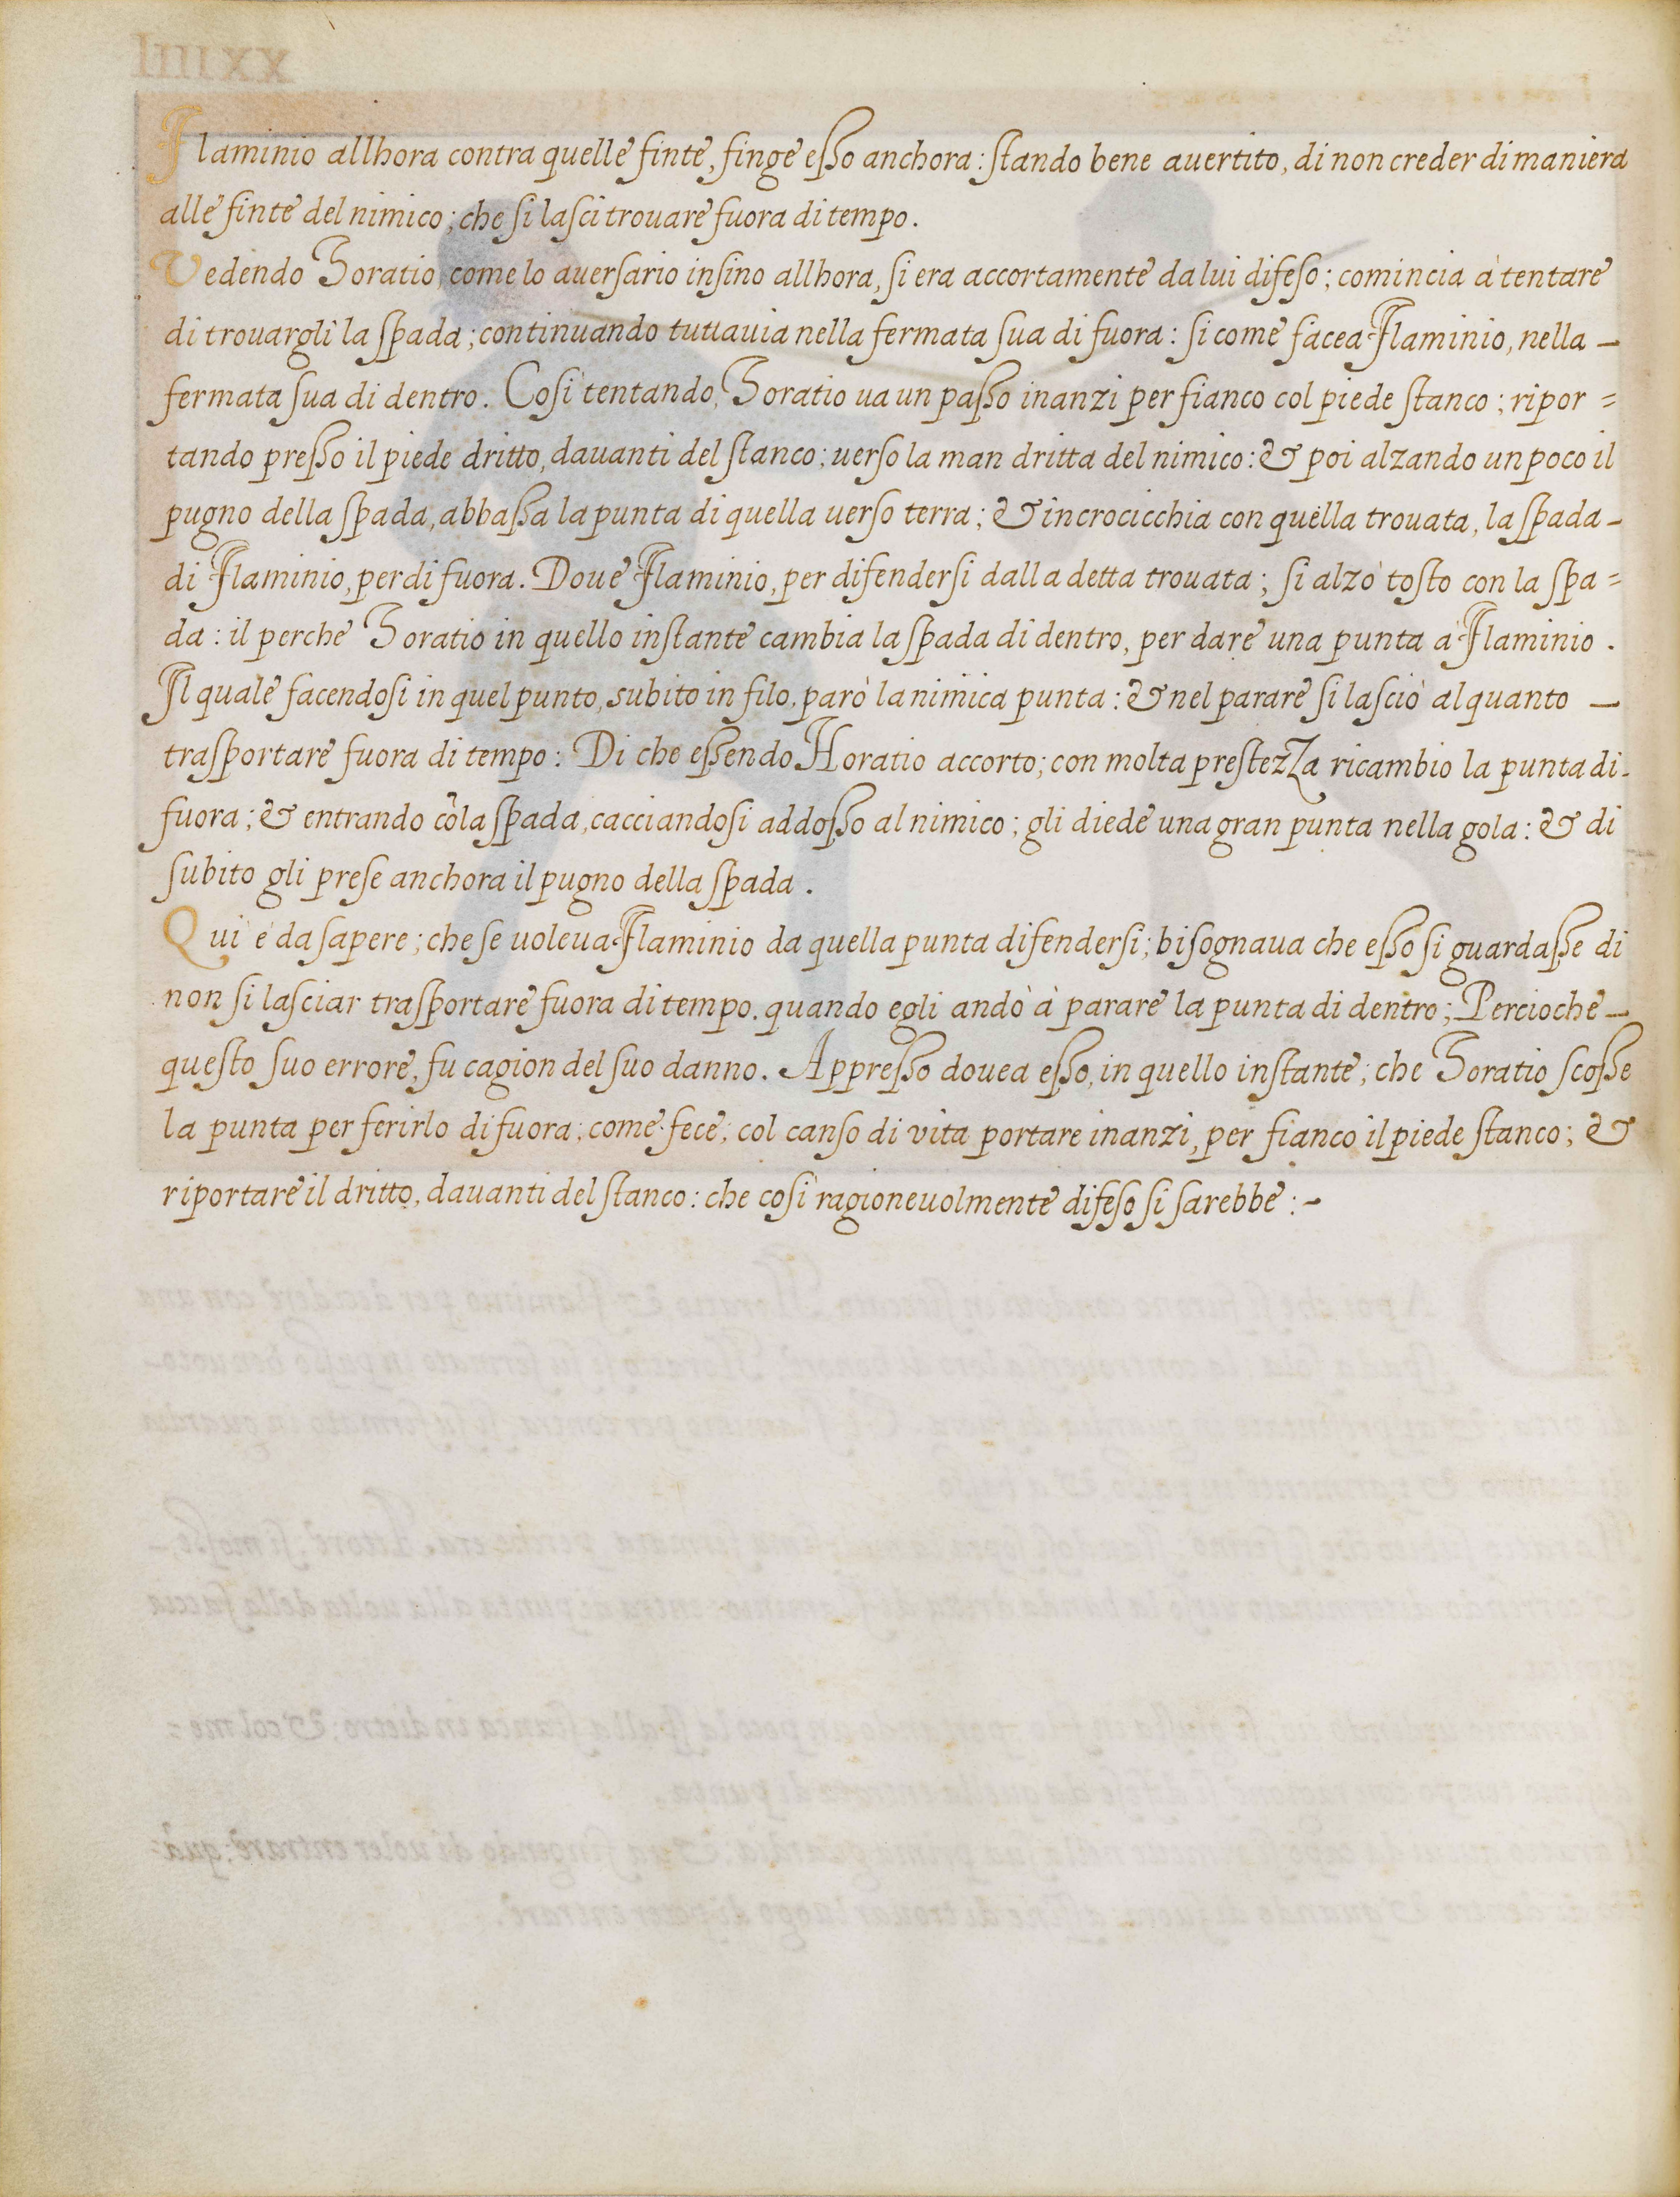 Flaminio allhora contra quelle finte, finge esso anchora: stando bene auertito, di non creder di maniera
alle finte del nimico; che si lasci trouare fuora di tempo.
Vedendo Horatio, come lo auersario insino allhora, si era accortamente da lui difeso; comincia à tentare
di trouargli la spada; continuando tuttauia nella fermata sua di fuora: si come facea Flaminio, nella –
fermata sua di dentro. Così tentando, Horatio ua un passo inanzi per fianco col piede stanco; ripor =
tando presso il piede dritto, dauanti del stanco; uerso la man dritta del nimico: & poi alzando un poco il
pugno della spada, abbassa la punta di quella uerso terra; & incrocicchia con quella trouata, la spada –
di Flaminio, per di fuora. Doue Flaminio, per difendersi dalla detta trouata; si alzò tosto con la spa =
da: il perche Horatio in quello instante cambia la spada di dentro, per dare una punta à Flaminio.
Il quale facendosi in quel punto, subito in filo, parò la nimica punta: & nel parare si lasciò alquanto –
trasportare fuora di tempo: Di che essendo Horatio accorto; con molta prestezza ricambio la punta di –
fuora; & entrando cõ la spada, cacciandosi addosso al nimico; gli diede una gran punta nella gola: & di
subito gli prese anchora il pugno della spada.
Qui è da sapere; che se uoleua Flaminio da quella punta difendersi; bisognaua che esso si guardasse di
non si lasciar trasportare fuora di tempo, quando egli andò à parare la punta di dentro; Percioche –
questo suo errore, fu cagion del suo danno. Appresso douea esso, in quello instante, che Horatio scosse
la punta per ferirlo di fuora, come fece; col canso di vita portare inanzi, per fianco il piede stanco; &
riportare il dritto, dauanti del stanco: che così ragioneuolmente difeso si sarebbe: –